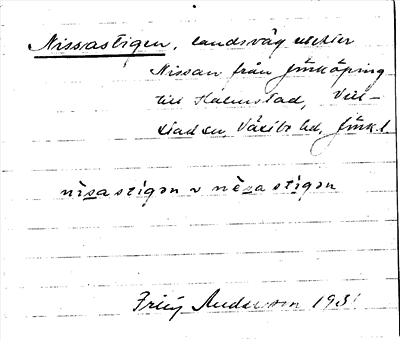 Nissastigen, landsväg utefter
Nissan från Jönköping
till Halmstad, Vill-
stad sn, Västbo hd, Jönk. l.
nìsastìgən ~ nèsastìgən
Andersson 193